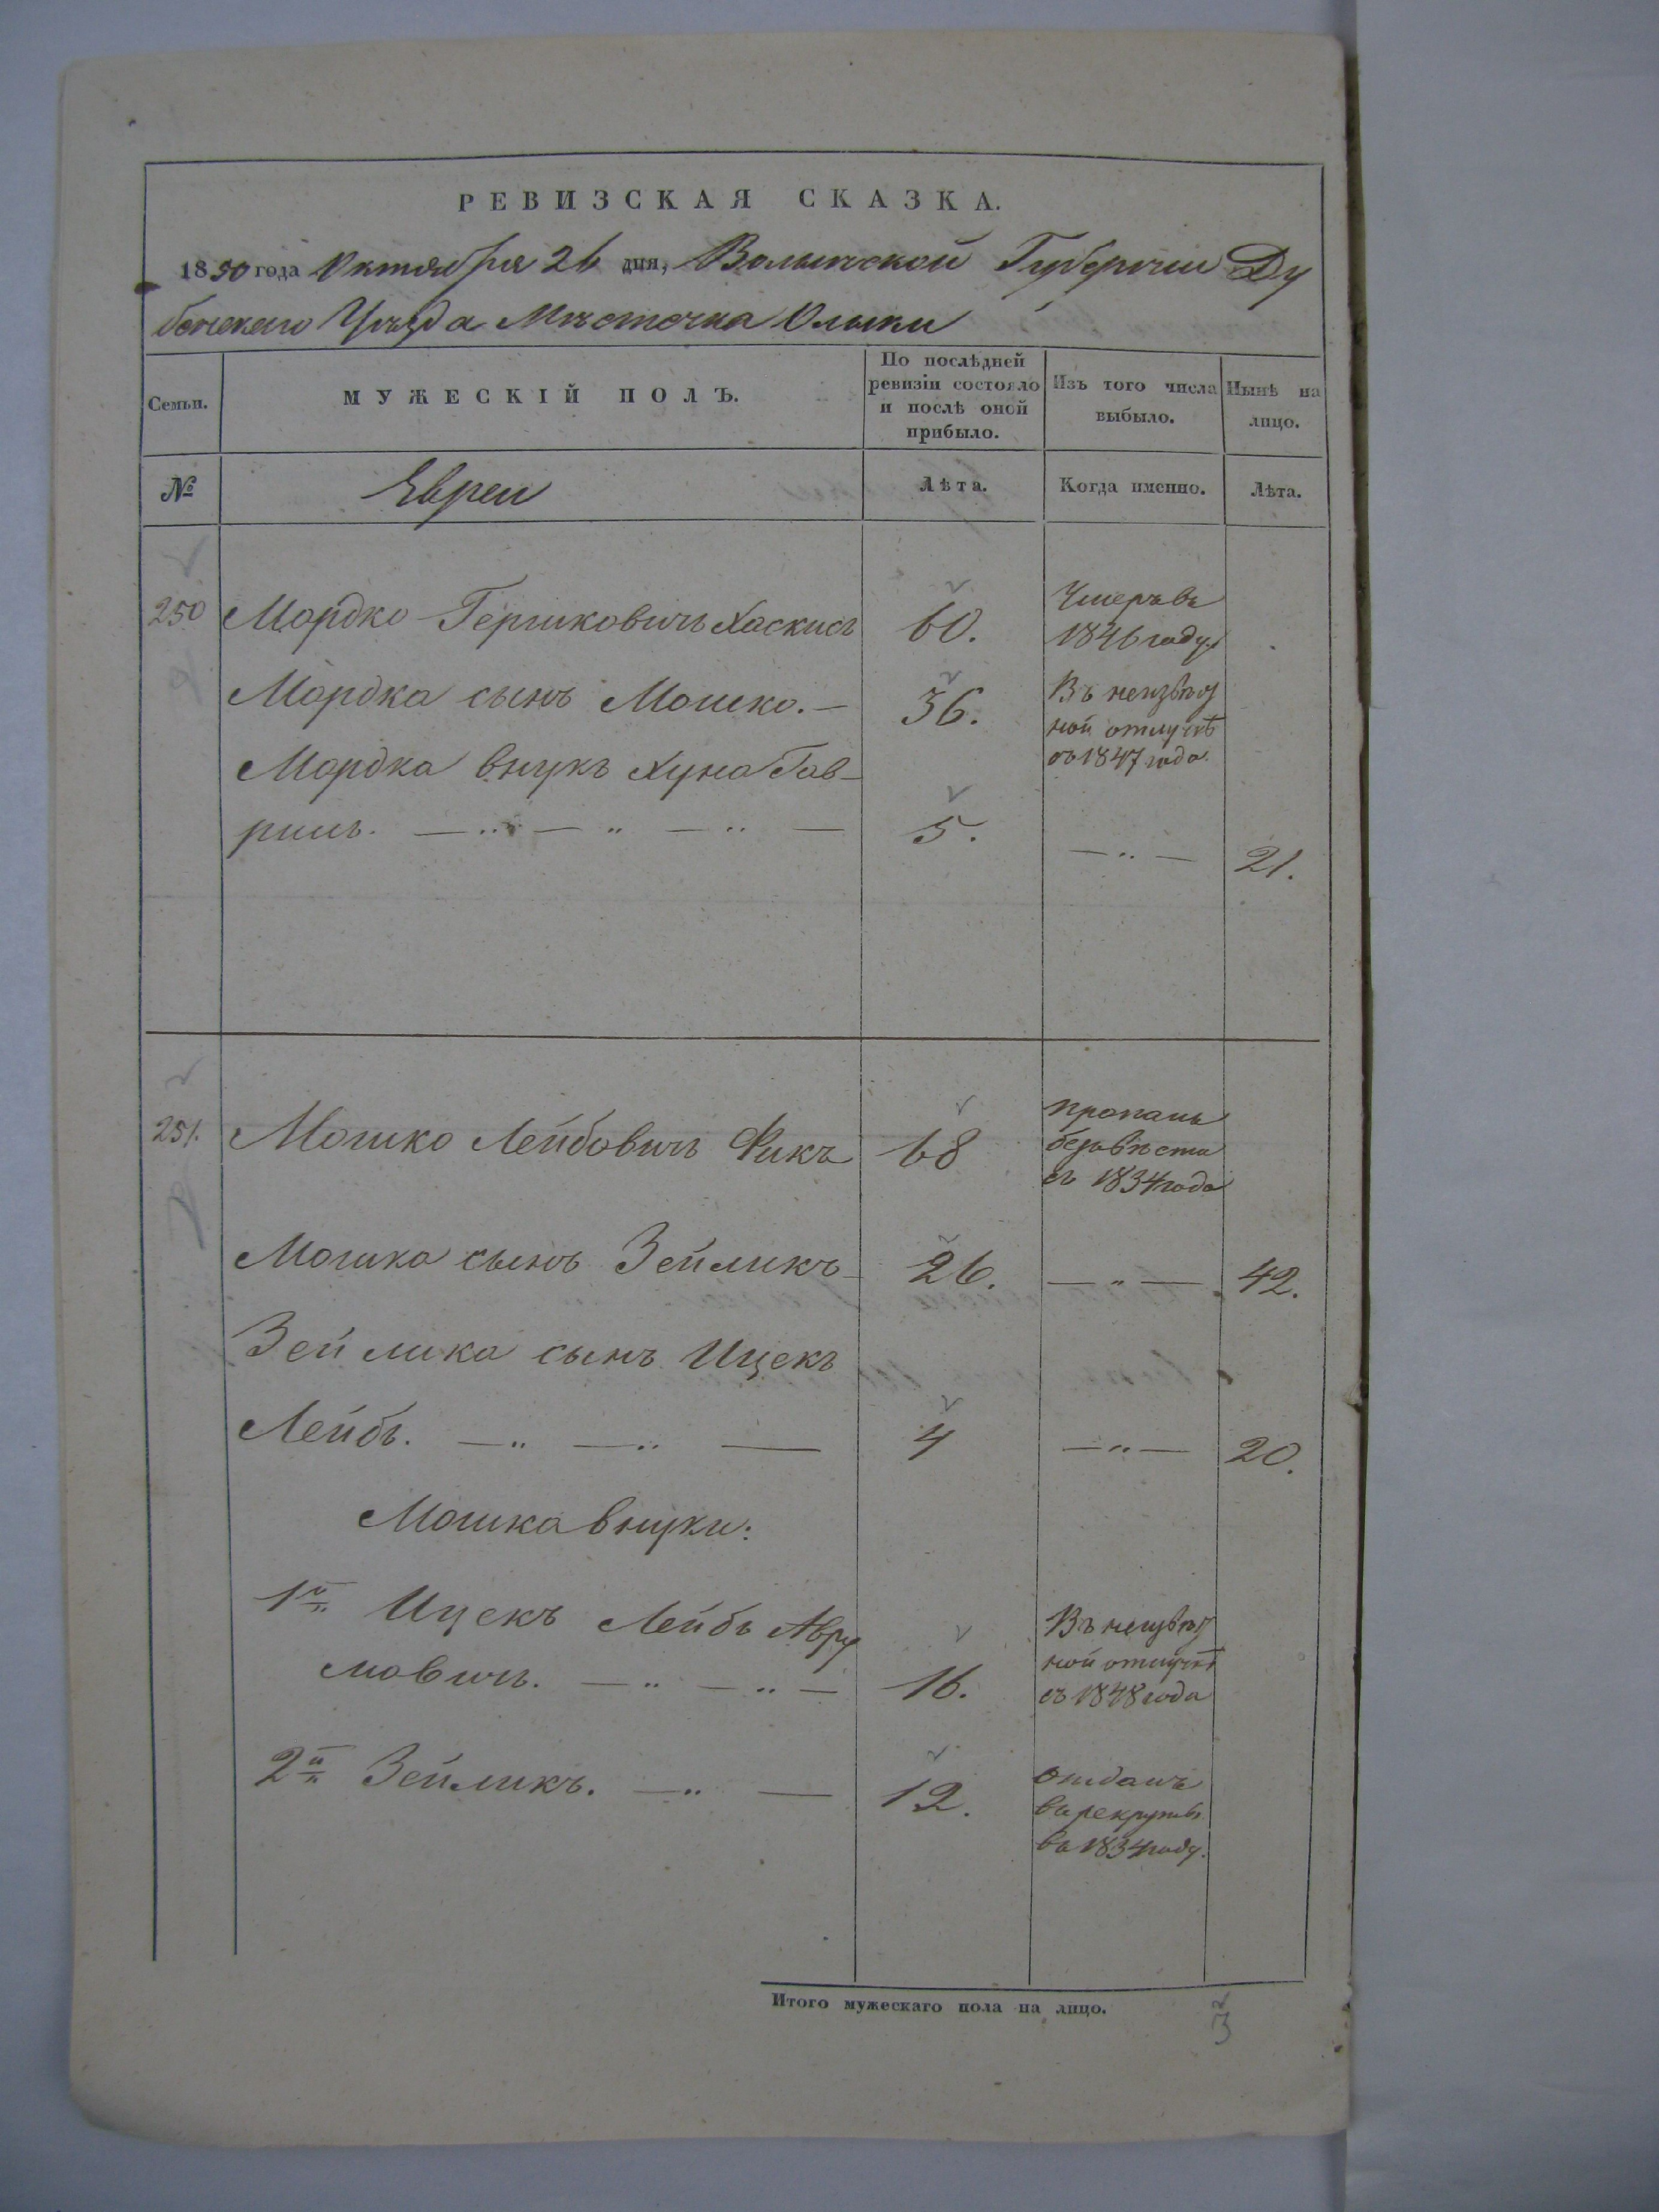 РЕВИЗСКАЯ СКАЗКА.
1850 года Октября 26 дня, Волынской Губернии Ду
бенскаго Уѣзда Мѣстечка Олыки
Семьи.
МУЖЕСКІЙ ПОЛЪ.
По послѣдней
ревизіи состояло
и послѣ оной
прибыло.
Изъ того числа
выбыло.
Нынѣ на
лицо.
№
Евреи
Лѣта.
Когда именно.
Лѣта.
250 Мордко Гершковичъ Хаскисъ 60. Умеръ въ
1846 году.
Мордка сынъ Мошко. — 36. Въ неизвѣст
ной отлучкѣ
съ 1847 года.
Мордка внукъ Хуна Гав-
риль. — „ — „ — „ — 5. — „ — 21.
251. Мошко Лейбовичъ Фикъ 68 пропалъ
безъ вѣсти
съ 1834 года
Мошка сынъ Зейликъ 26. — „ — 42.
Зейлика сынъ Ицекъ
Лейбъ. — „ — „ — 4 — „ — 20.
Мошка внуки:
1й Ицекъ Лейбъ Авру
мовичъ. — „ — „ — 16. Въ неизвѣст
ной отлучкѣ
съ 1848 года
2й Зейликъ. — „ — 12. отданъ
въ рекруты
въ 1834 году.
Итого мужескаго пола на лицо. 3